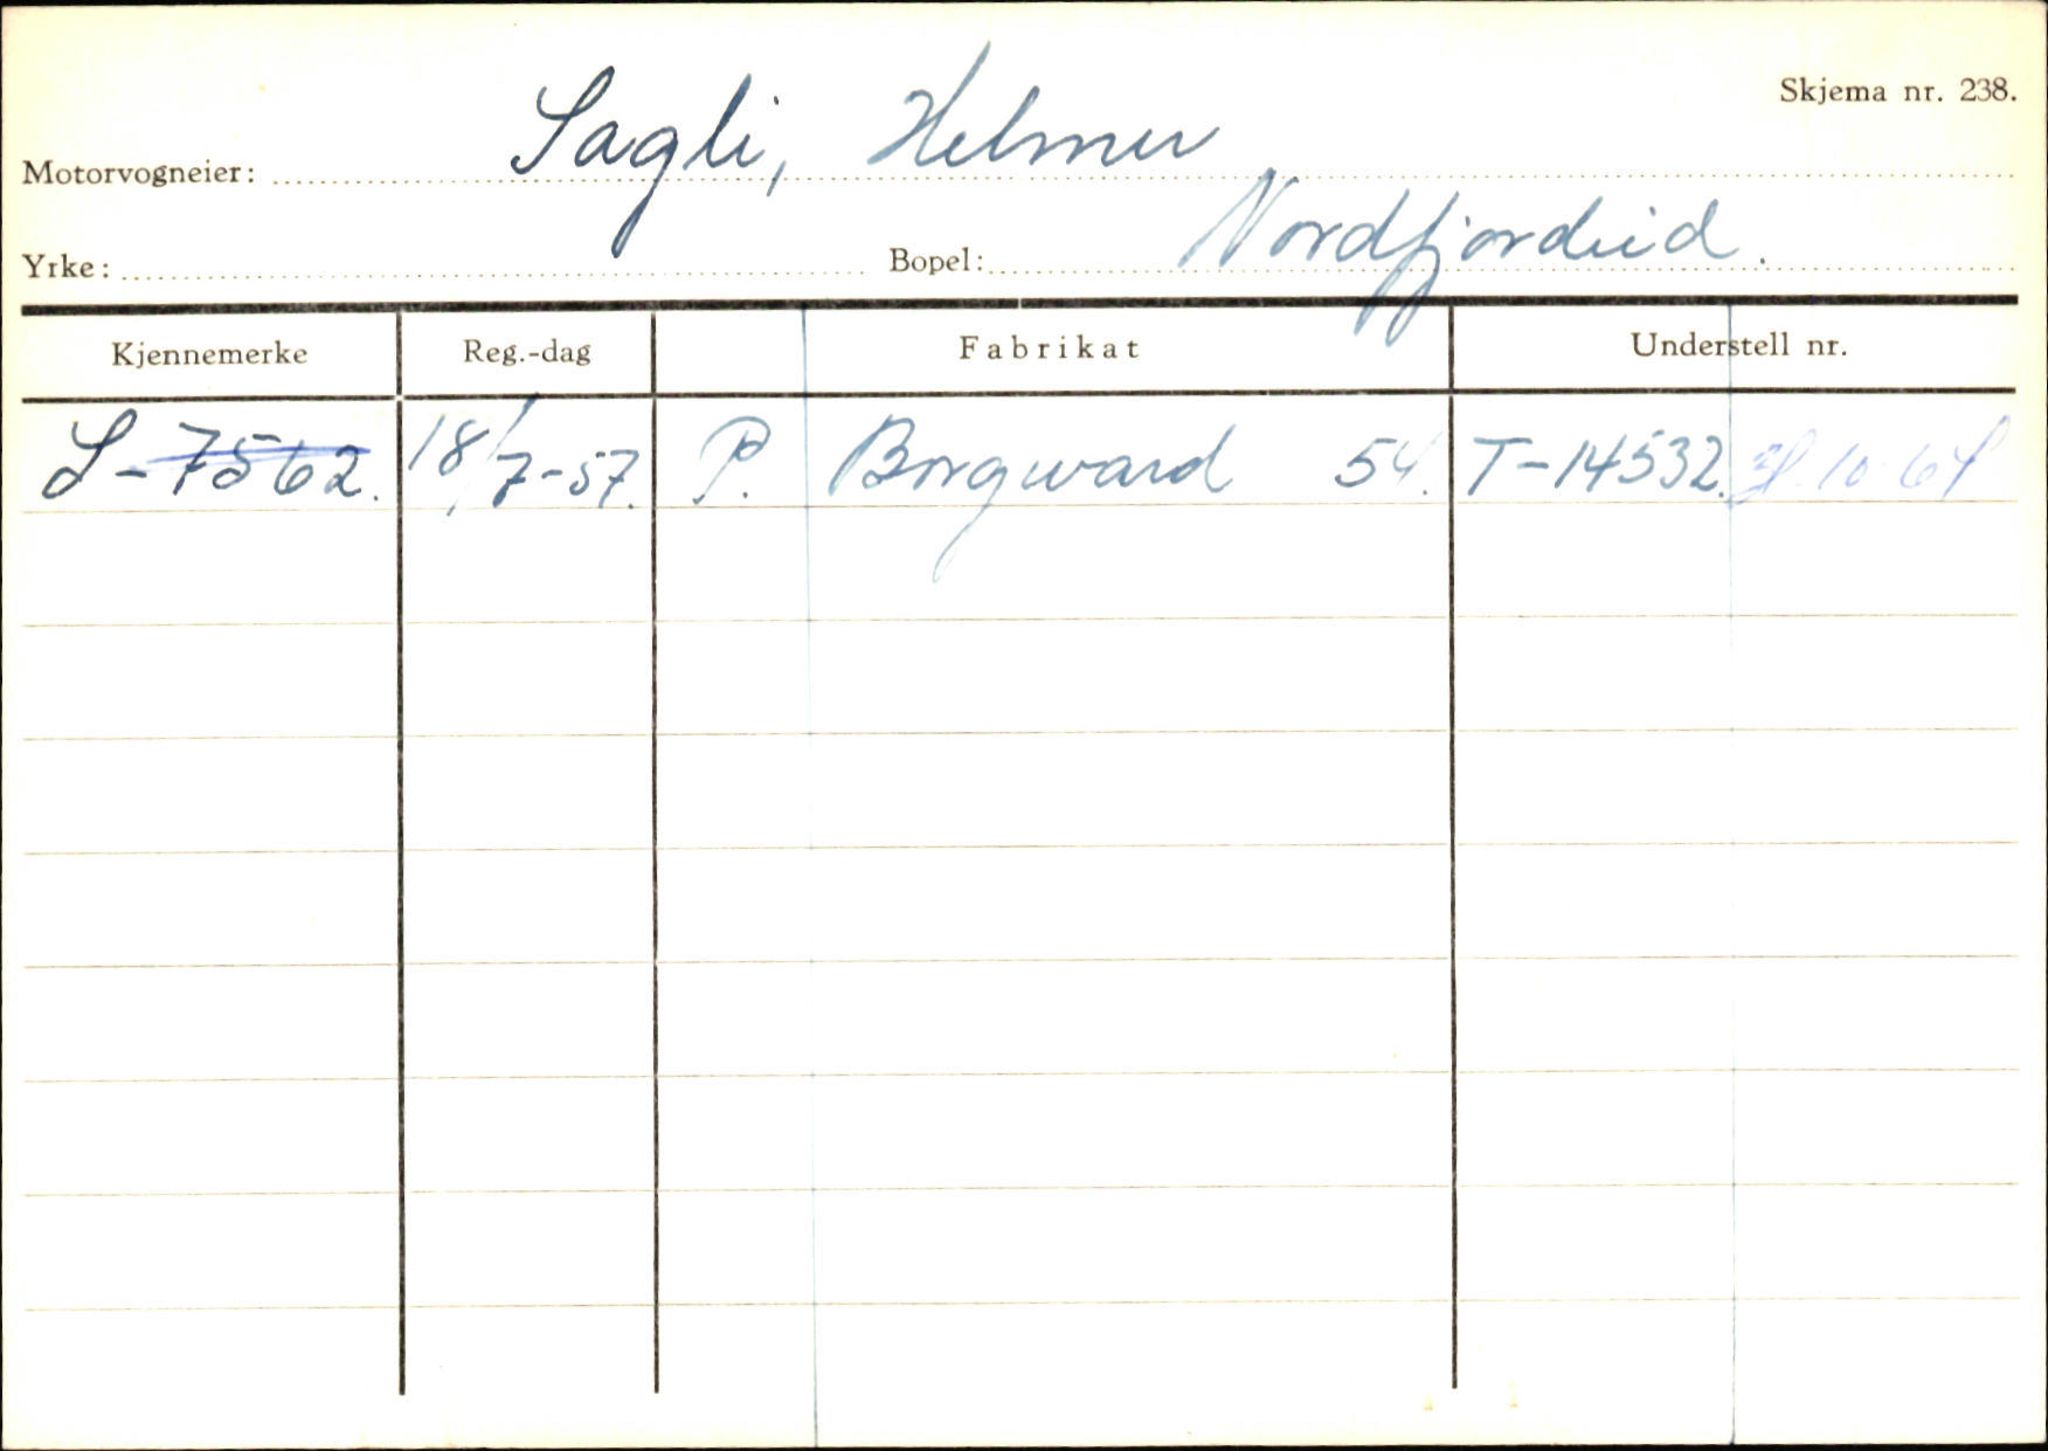 Skjema nr. 238.
Motorvogneier: Sagli, Helmer
Yrke: Bopel: Nordfjordeid.
Kjennemerke Reg.-dag Fabrikat Understell nr.
S-7562. 18/7-57. P. Borgward 54. T-14532. 10-64